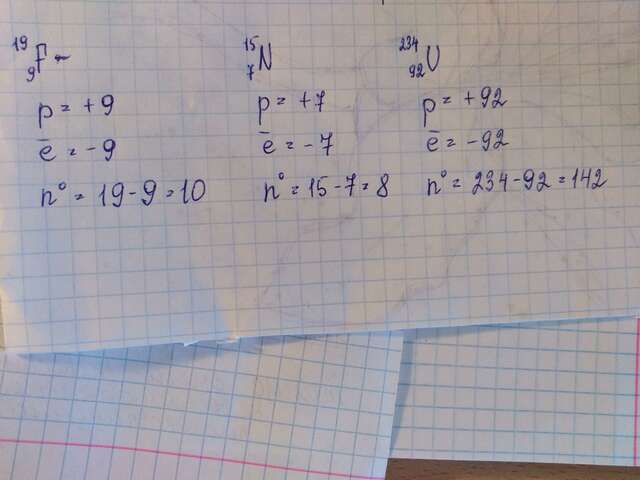 ¹⁹₉F – ¹⁵₇N ²³⁴₉₂U
p = +9 p = +7 p = +92
e̅ = -9 e̅ = -7 e̅ = -92
n⁰ = 19-9=10 n⁰ = 15-7=8 n⁰ = 234-92=142